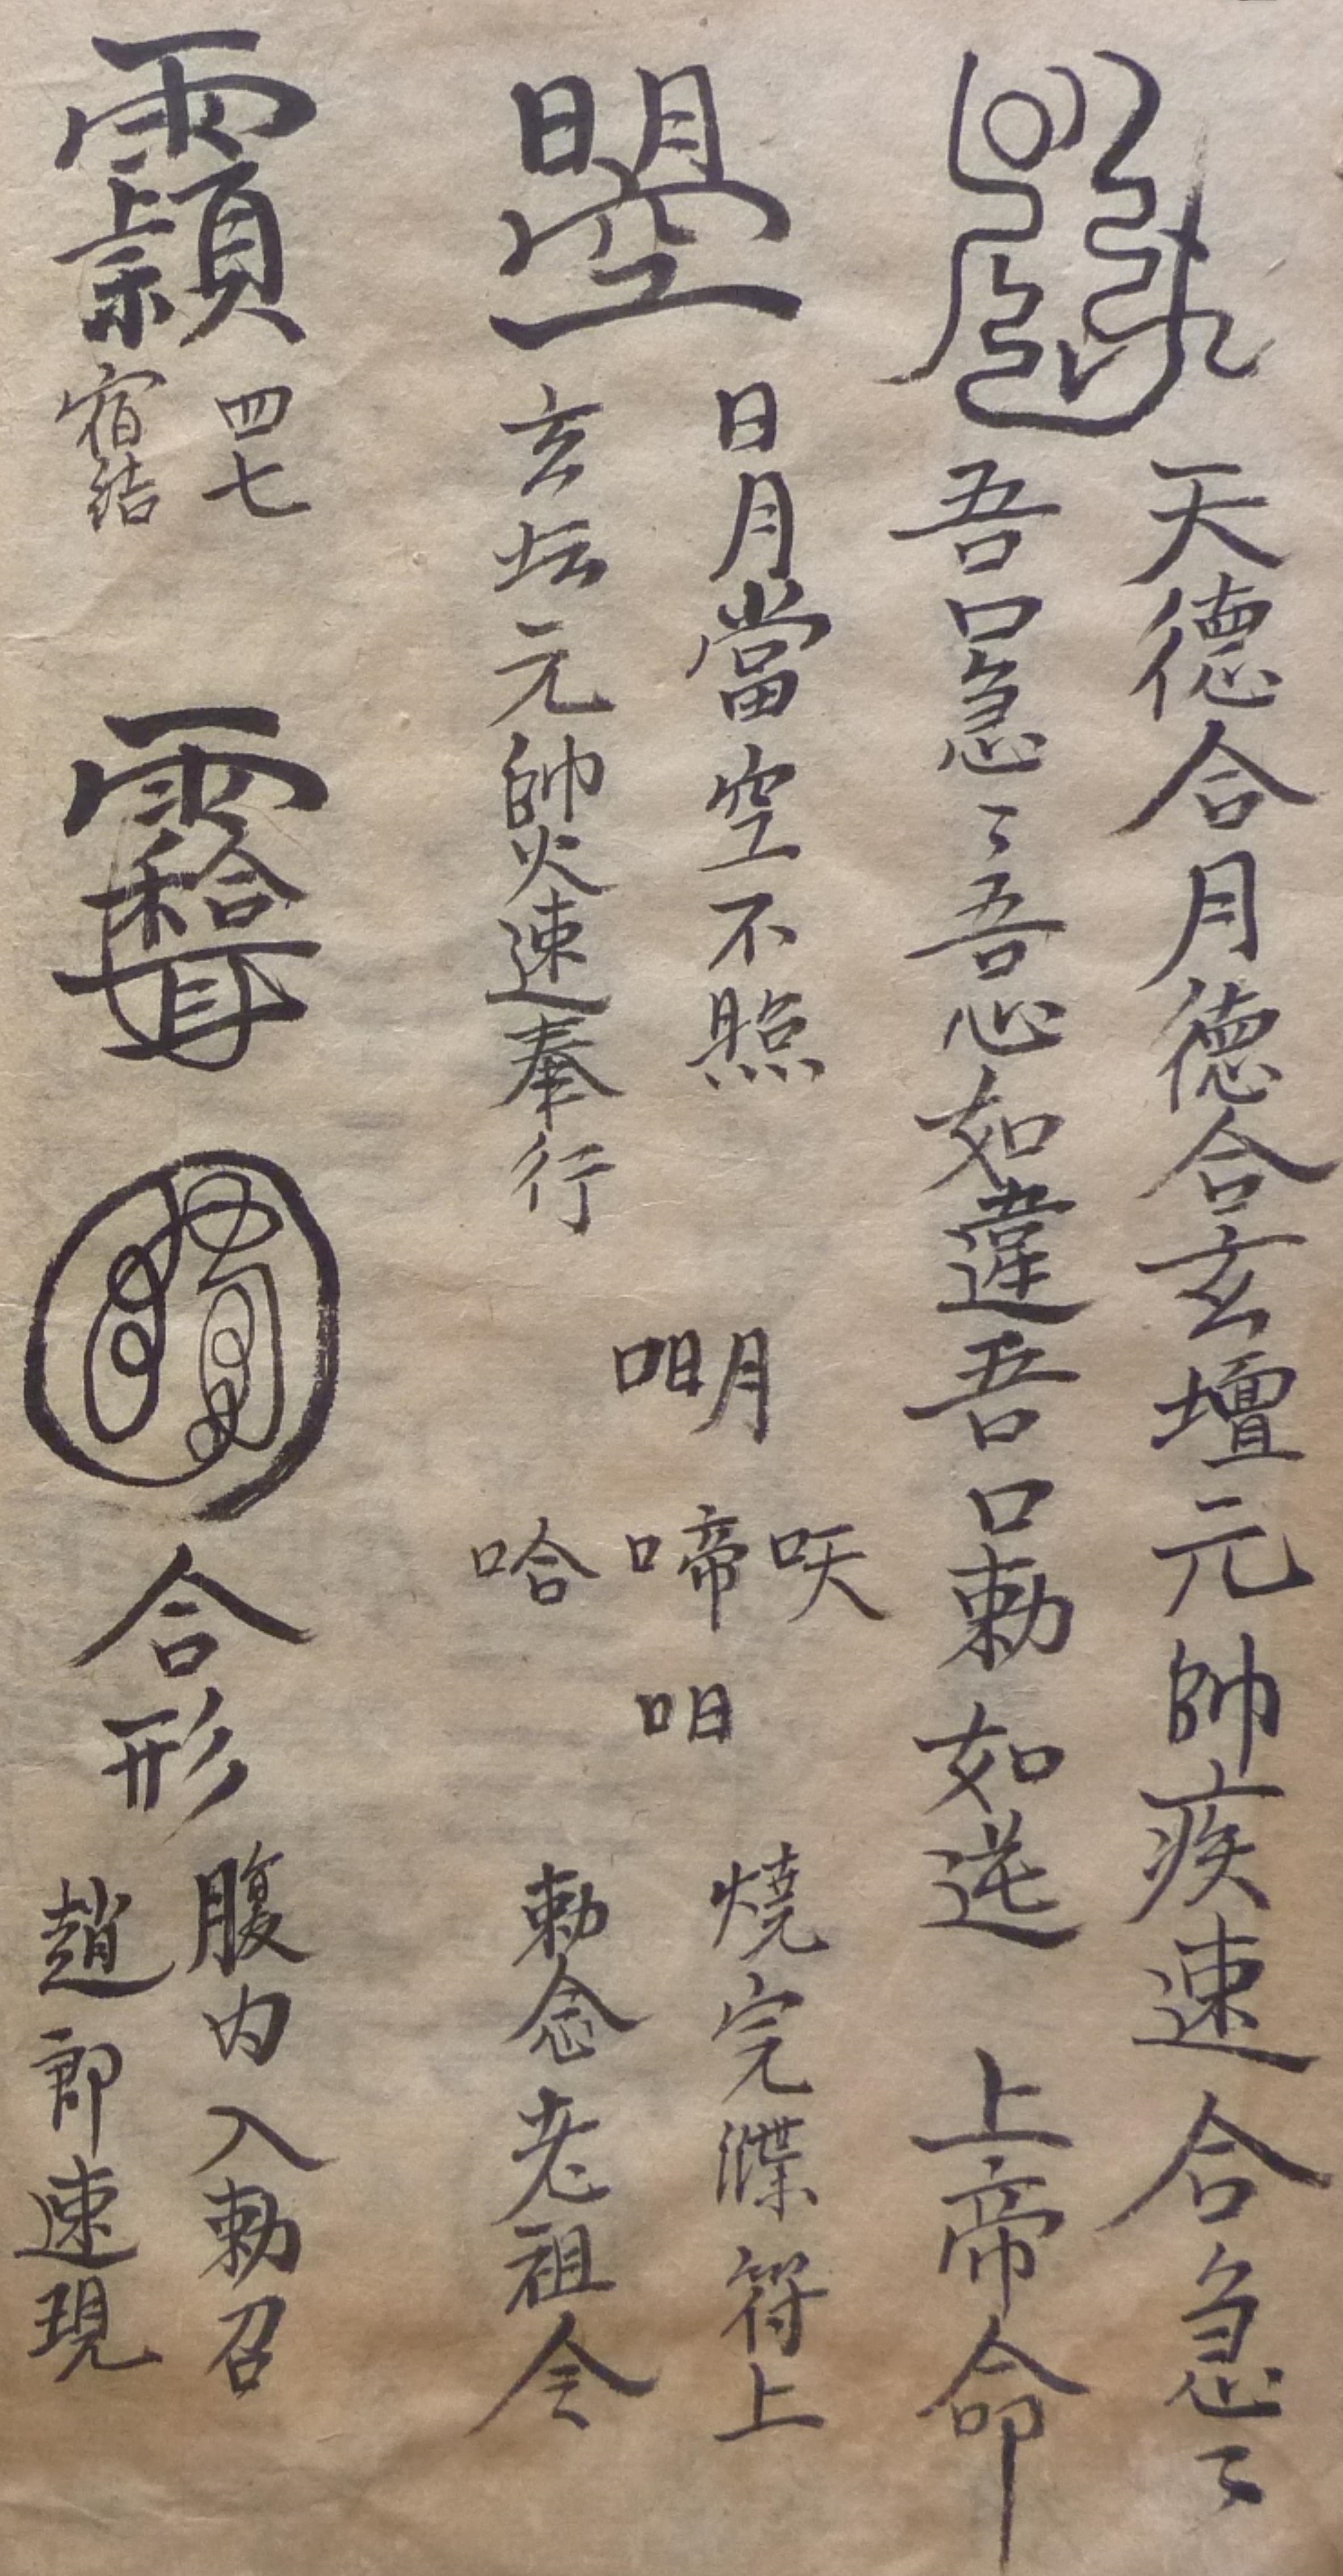 天德合月德合玄壇元帥疾速合急〻
吾口急〻吾心如違吾口勅如逆 上帝命
日月當空不照
玄坛元帥火速奉行
哈 啼 㕭
咡
燒完
符上
勅念老祖令
四七
宿結
合形
腹内入勅召
趙郎速現